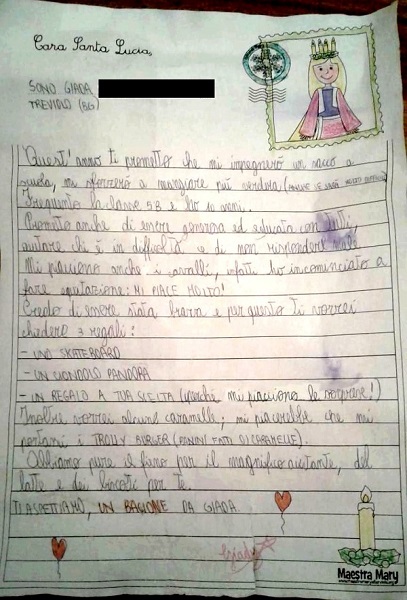 Cara Santa Lucia,
SONO GIADA
TREVIOLO (BG)
Quest'anno ti prometto che mi impegnerò un sacco a
scuola, mi sforzerò a mangiare più verdura (ANCHE SE SARÀ MOLTO DIFFICILE)
Frequento la classe 5B e ho 10 anni.
Prometto anche di essere generosa ed educata con tutti,
aiutare chi è in difficoltà e di non rispondere male.
Mi piacciono anche i cavalli, infatti ho incominciato a
fare equitazione: MI PIACE MOLTO!
Credo di essere stata brava e per questo ti vorrei
chiedere 3 regali:
- UNO SKATEBOARD
- UN CIONDOLO PANDORA
- UN REGALO A TUA SCELTA (perché mi piacciono le sorprese!)
Inoltre vorrei alcune caramelle; mi piacerebbe che mi
portassi i TROLLY BURGER (PANINI FATTI DI CARAMELLE).
Abbiamo pure il fieno per il magnifico aiutante, del
latte e dei biscotti per te.
TI ASPETTIAMO, UN BACIONE DA GIADA.
Giada
Maestra Mary